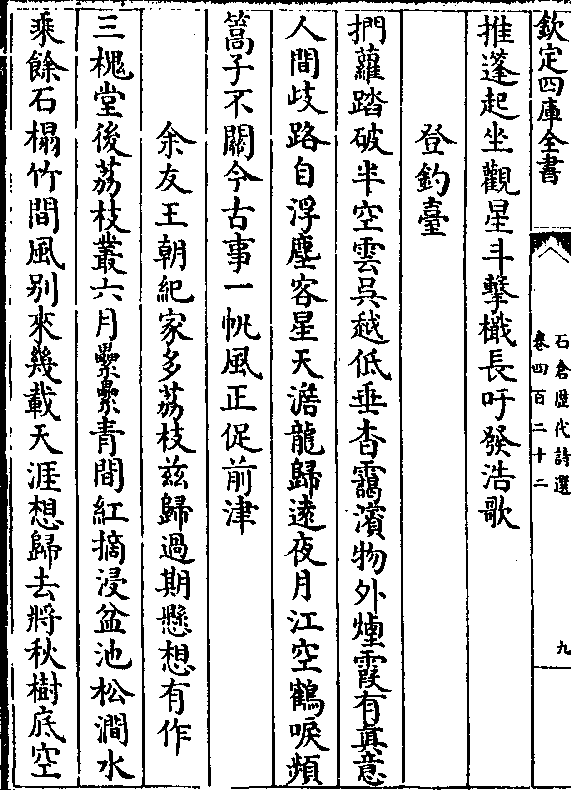 欽定四庫全書
石倉歷代詩選
卷四百二十二
九
推蓬起坐觀星斗擊檝長吁發浩歌
登釣臺
捫蘿踏破半空雲吳越低垂杳靄濆物外煙霞有眞意
人間歧路自浮塵客星天濶龍歸遠夜月江空鶴唳頻
篙子不關今古事一帆風正促前津
余友王朝紀家多荔枝兹歸過期懸想有作
三槐堂後荔枝叢六月纍纍青間紅摘浸盆池松澗水
乘餘石榻竹間風别來幾載天涯想歸去將秋樹底空